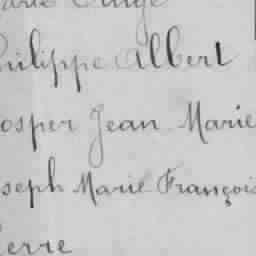 Marie Ange
Philippe Albert
rosper Jean Marie
oseph Marie François
ierre